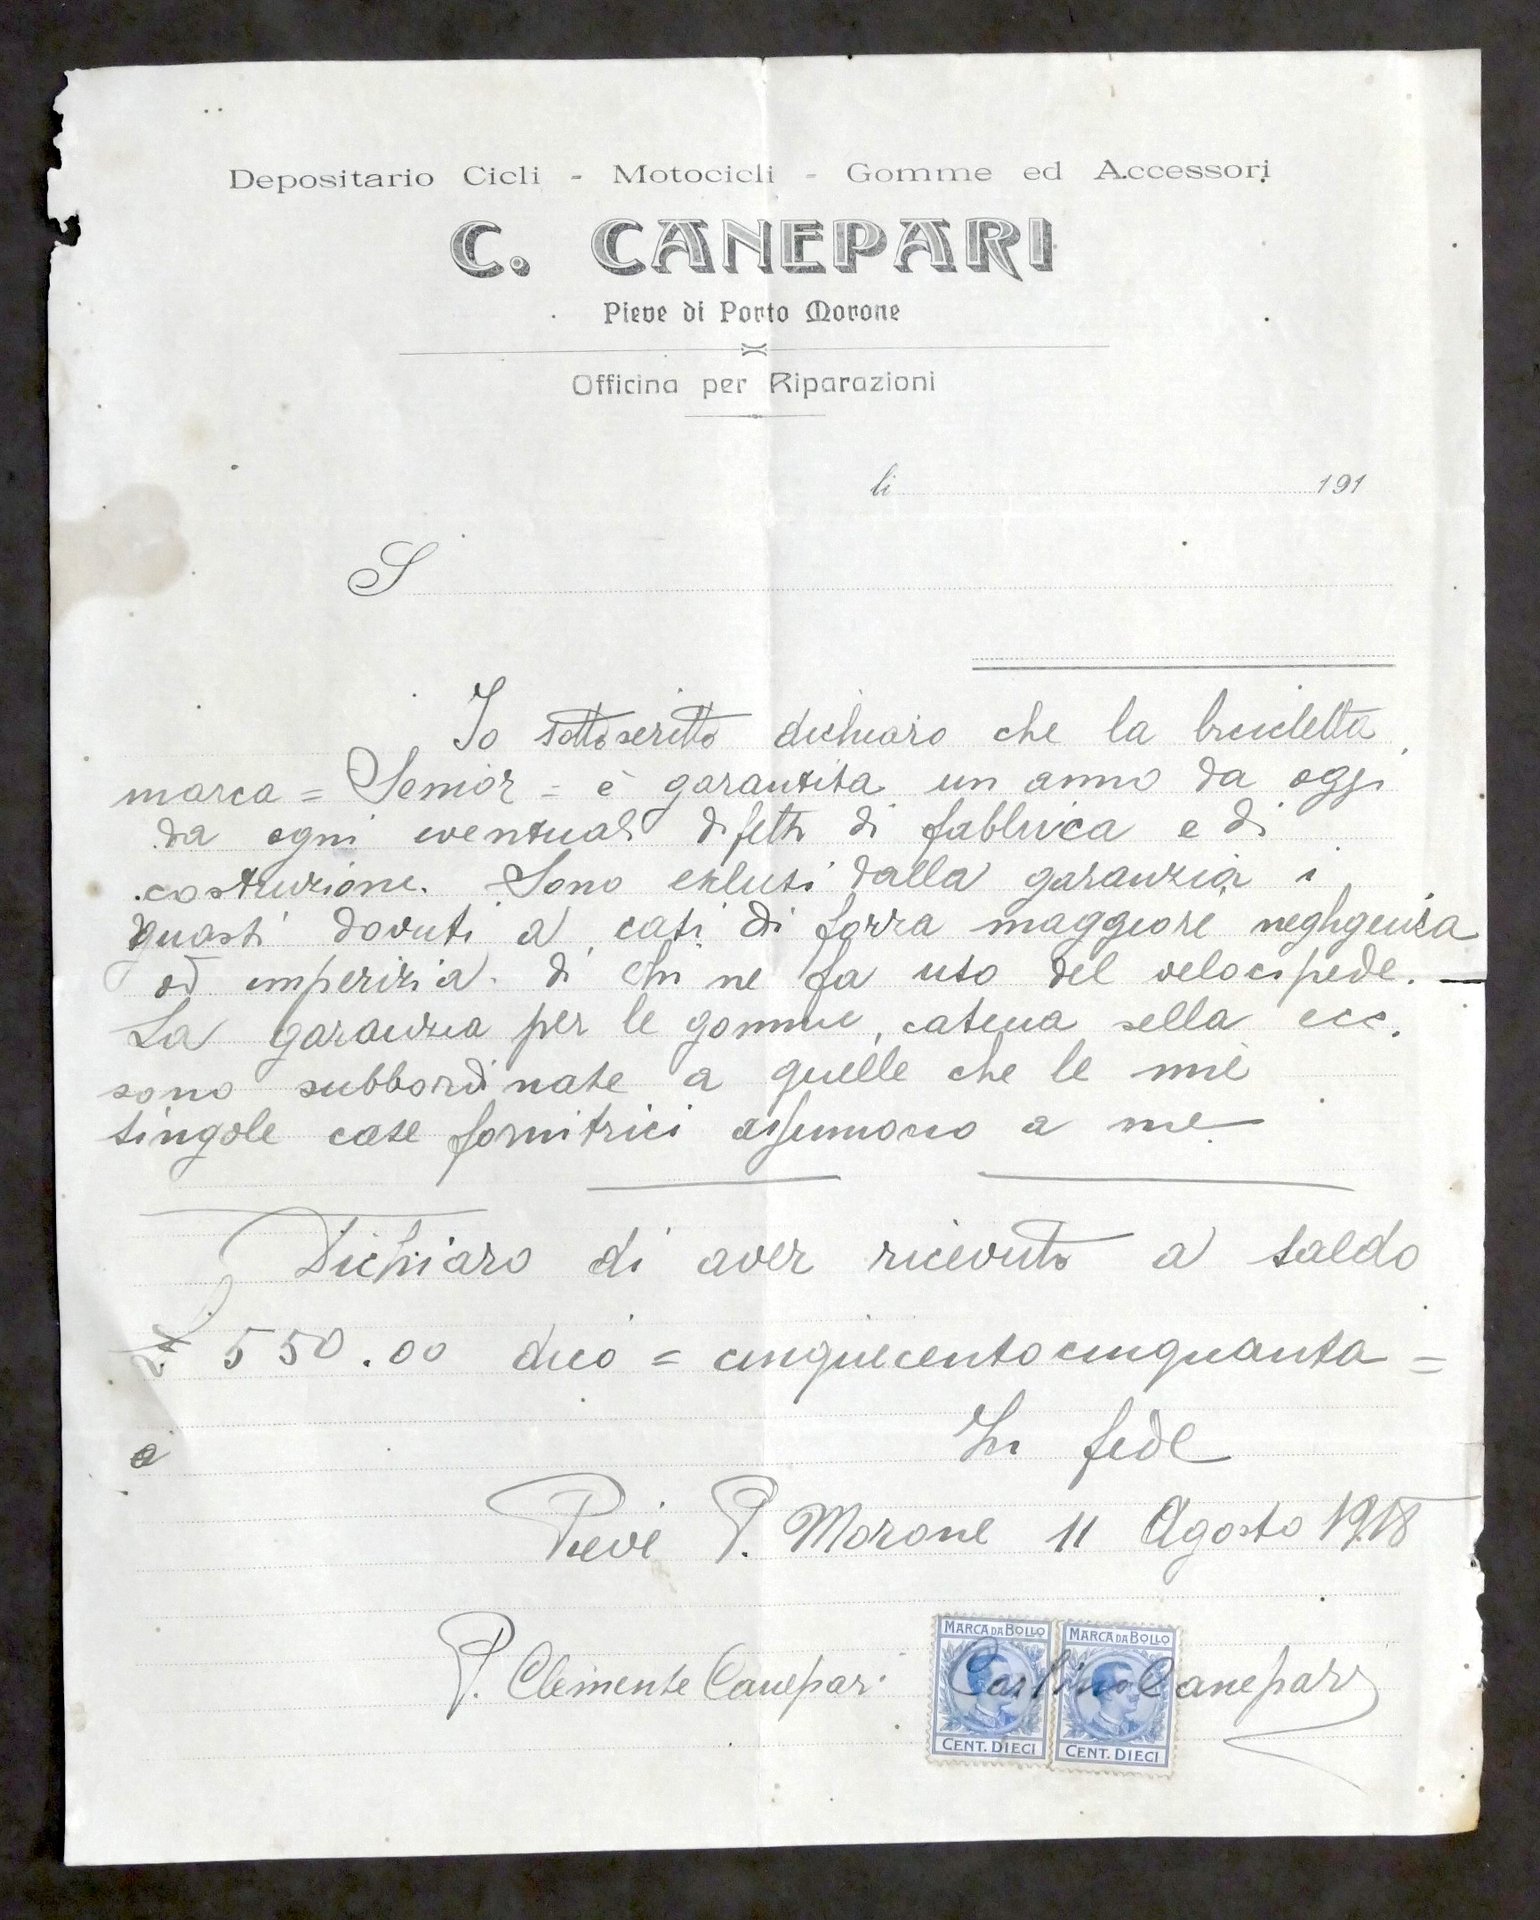 Depositario Cicli - Motocicli - Gomme ed Accessori
C. CANEPARI
Pieve di Porto Morone
Officina per Riparazioni
li 191
S
Io sottoscritto dichiaro che la bicicletta
marca = Senior = è garantita un anno da oggi
da ogni eventuali difetti di fabbrica e di
costruzione. Sono eslusi dalla garanzia i
guasti dovuti a casi di forza maggiore negligenza
od imperizia di chi ne fa uso del velocipede. —
La garanzia per le gomme, catena sella ecc.
sono subbordinate a quelle che le mie
singole case fornitrici assumono a me
Dichiaro di aver ricevuto a saldo
550.00 dico = cinquecentocinquanta =
In fede
Pieve P. Morone 11 Agosto 1918
P. Clemente Canepari Carlino Canepari
MARCA DA BOLLO MARCA DA BOLLO
CENT. DIECI CENT. DIECI